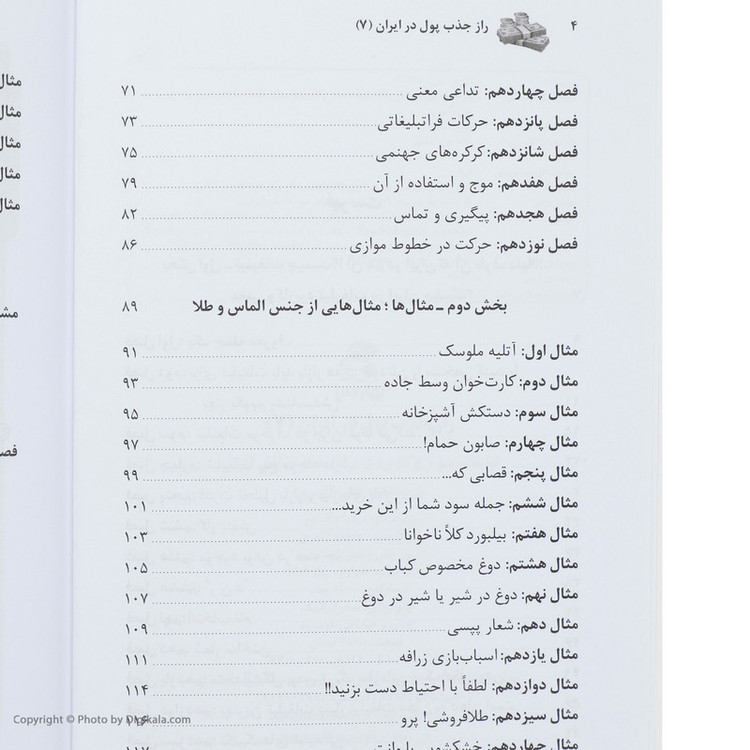 ۴ راز جذب پول در ایران (۷)
فصل چهاردهم: تداعی معنی ۷۱
فصل پانزدهم: حرکات فراتبلیغاتی ۷۳
فصل شانزدهم: کرکره‌های جهنمی ۷۵
فصل هفدهم: موج و استفاده از آن ۷۹
فصل هجدهم: پیگیری و تماس ۸۲
فصل نوزدهم: حرکت در خطوط موازی ۸۶
بخش دوم ـ مثال‌ها؛ مثال‌هایی از جنس الماس و طلا ۸۹
مثال اول: آتلیه ملوسک ۹۱
مثال دوم: کارت‌خوان وسط جاده ۹۳
مثال سوم: دستکش آشپزخانه ۹۵
مثال چهارم: صابون حمام! ۹۷
مثال پنجم: قصابی که... ۹۹
مثال ششم: جمله سود شما از این خرید... ۱۰۱
مثال هفتم: بیلبورد کلاً ناخوانا ۱۰۳
مثال هشتم: دوغ مخصوص کباب ۱۰۵
مثال نهم: دوغ در شیر یا شیر در دوغ ۱۰۷
مثال دهم: شعار پپسی ۱۰۹
مثال یازدهم: اسباب‌بازی زرافه ۱۱۱
مثال دوازدهم: لطفاً با احتیاط دست بزنید!! ۱۱۴
مثال سیزدهم: طلافروشی! پرو ۱۱۶
مثال چهاردهم: خشکشویی با وانت ۱۱۷
مثال
مثال
مثال
مثال
مثال
Copyright © Photo by Digikala.com